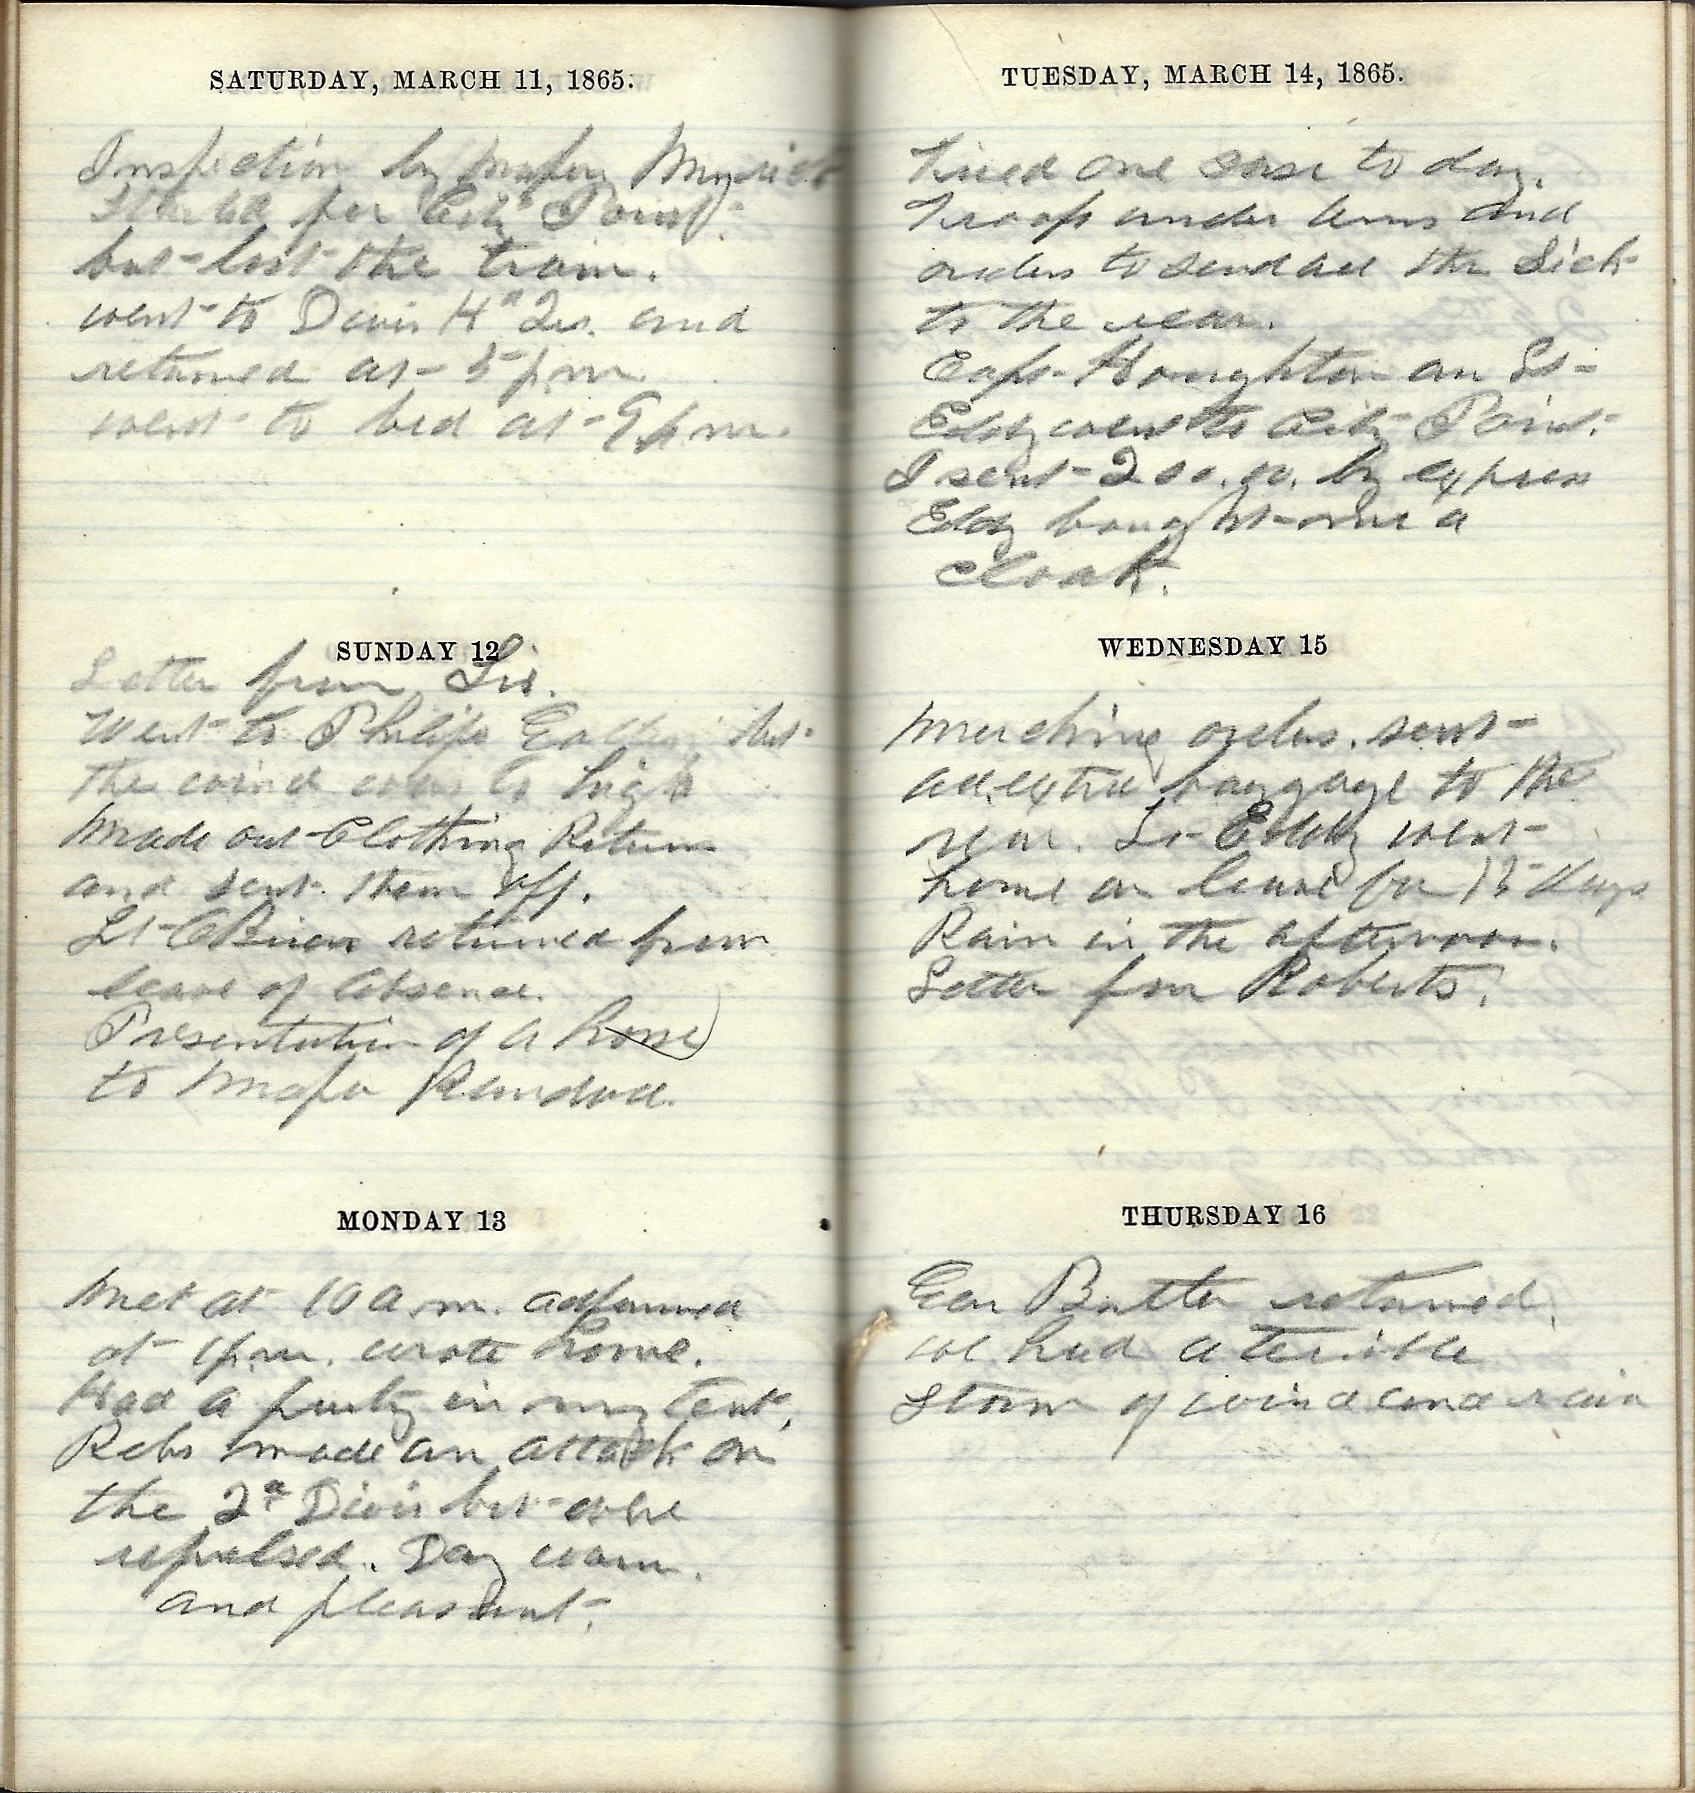 SATURDAY, MARCH 11, 1865.
Inspection by Major
Started for City Point.
but lost the train.
went to Divis Hd Qrs. and
returned at 5 pm
went to bed at 9 pm.
SUNDAY 12
Letter from Liv.
Went to Philip but
the wind was to high
Made out Clothing Return
and sent them off.
Lt OBrien returned from
leave of absence.
Presentation of a horse
to Major Randall.
MONDAY 13
Met at 10 a.m. adjourned
at 1 p.m. wrote home.
Had a party in my tent,
Rebs made an attack on
the 2d Divis but were
repulsed. Day warm.
and pleasant.
TUESDAY, MARCH 14, 1865.
Tried one case to day.
Troops under arms and
orders to send all the Sick
to the rear.
Capt. Houghton an Lt
Eddy went to City Point.
I sent 200.00. by express
Eddy bought me a
cloak.
WEDNESDAY 15
Marching orders. sent
all extra baggage to the
rear. Lt Eddy went
home on leave for 15 days
Rain in the afternoon.
Letter from Roberts.
THURSDAY 16
Geo returned.
we had a terrible
storm of wind and rain